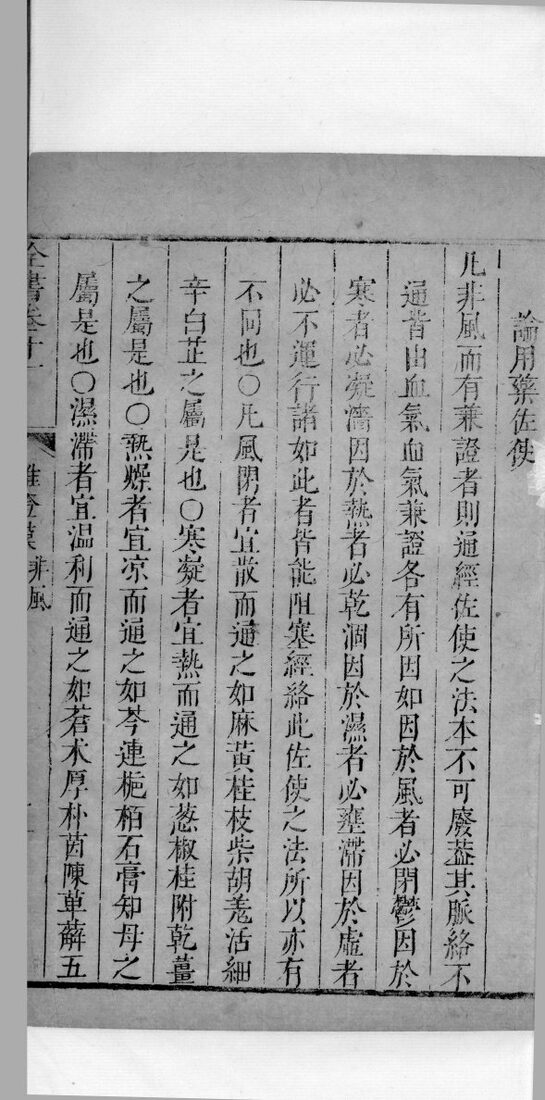 論用藥佐使
凡非風而有兼證者則通經佐使之法本不可廢葢其脈絡不
通皆由血氣血氣兼證各有所因如因於風者必閉鬱因於
寒者必凝濇因於熱者必乾涸因於濕者必壅滯因於虛者
必不運行諸如此者皆能阻塞經絡此佐使之法所以亦有
不同也○凡風閉者宜散而通之如麻黃桂枝柴胡羗活細
辛白芷之屬是也○寒凝者宜熱而通之如葱椒桂附乾薑
之屬是也○熱燥者宜凉而通之如芩連梔栢石膏知母之
屬是也○濕滯者宜温利而通之如蒼朮厚朴茵陳萆薢五
全書卷十一
雜證謨 非風